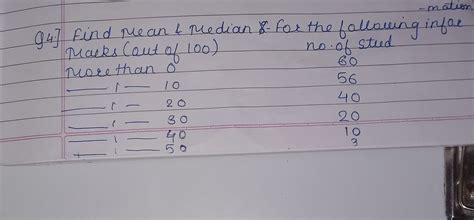 -mation
Q4] Find Mean & Median & for the following infor
Marks (out of 100) no. of stud
More than 0 60
—— 1 — 10 56
—— 1 — 20 40
—— 1 — 30 20
—— 1 — 40 10
—— 1 — 50 3